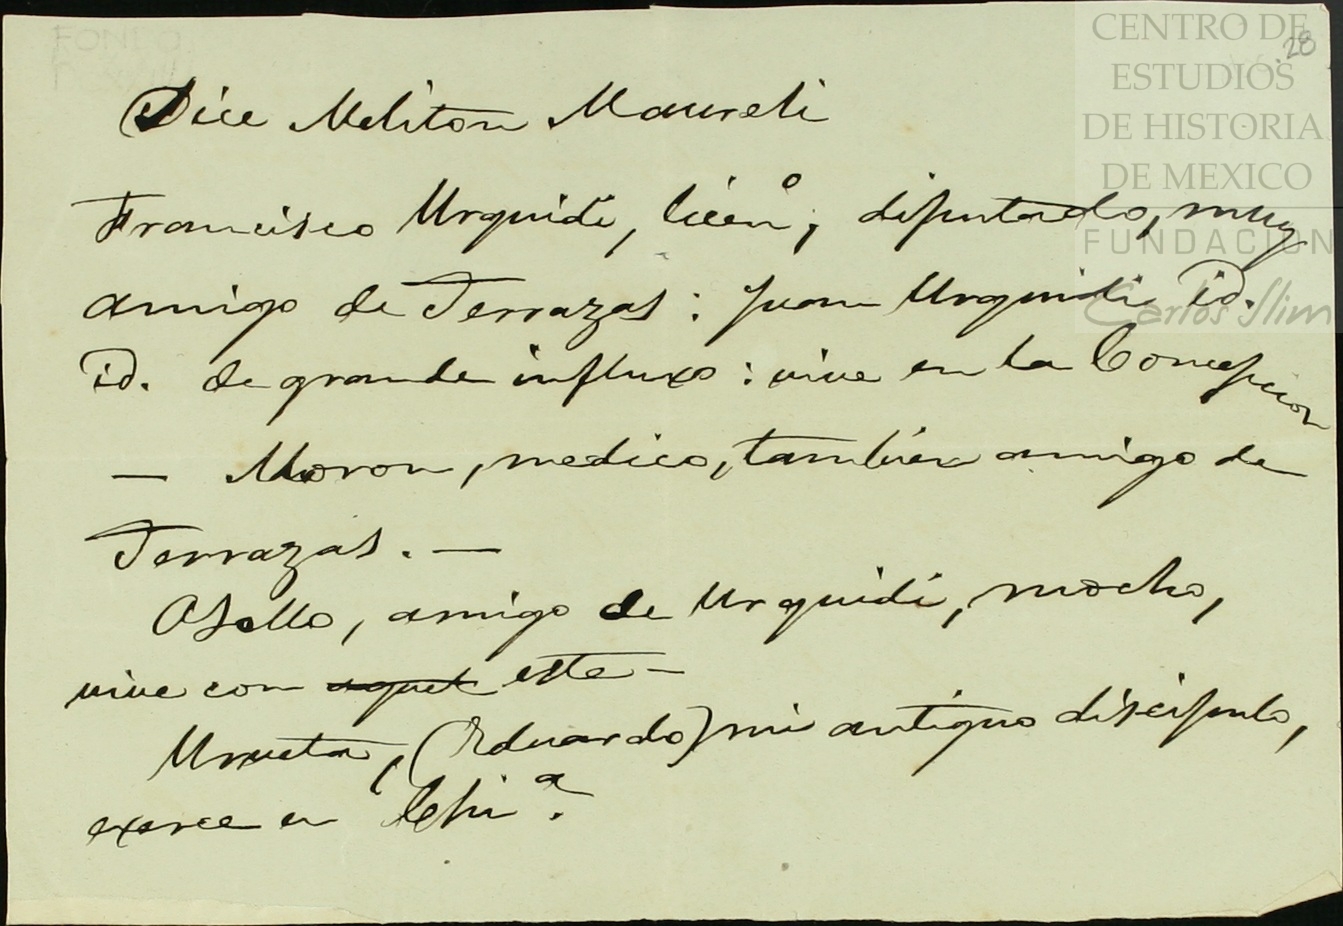 CENTRO DE
ESTUDIOS
DE HISTORIA
DE MEXICO
FUNDACION
Carlos Slim
28
FONDO
Dice Meliton Maureli
Francisco Urquidi, licenº, diputado, muy
amigo de Terrazas: Juan Urquidi id.
id. de grande influxo: vive en la Concepcion
— Moron, medico, tambien amigo de
Terrazas. —
Osollo, amigo de Urquidi, mocho,
vive con aquel este —
Urueta, (Eduardo) mi antiguo discipulo,
exerce en Chiª.